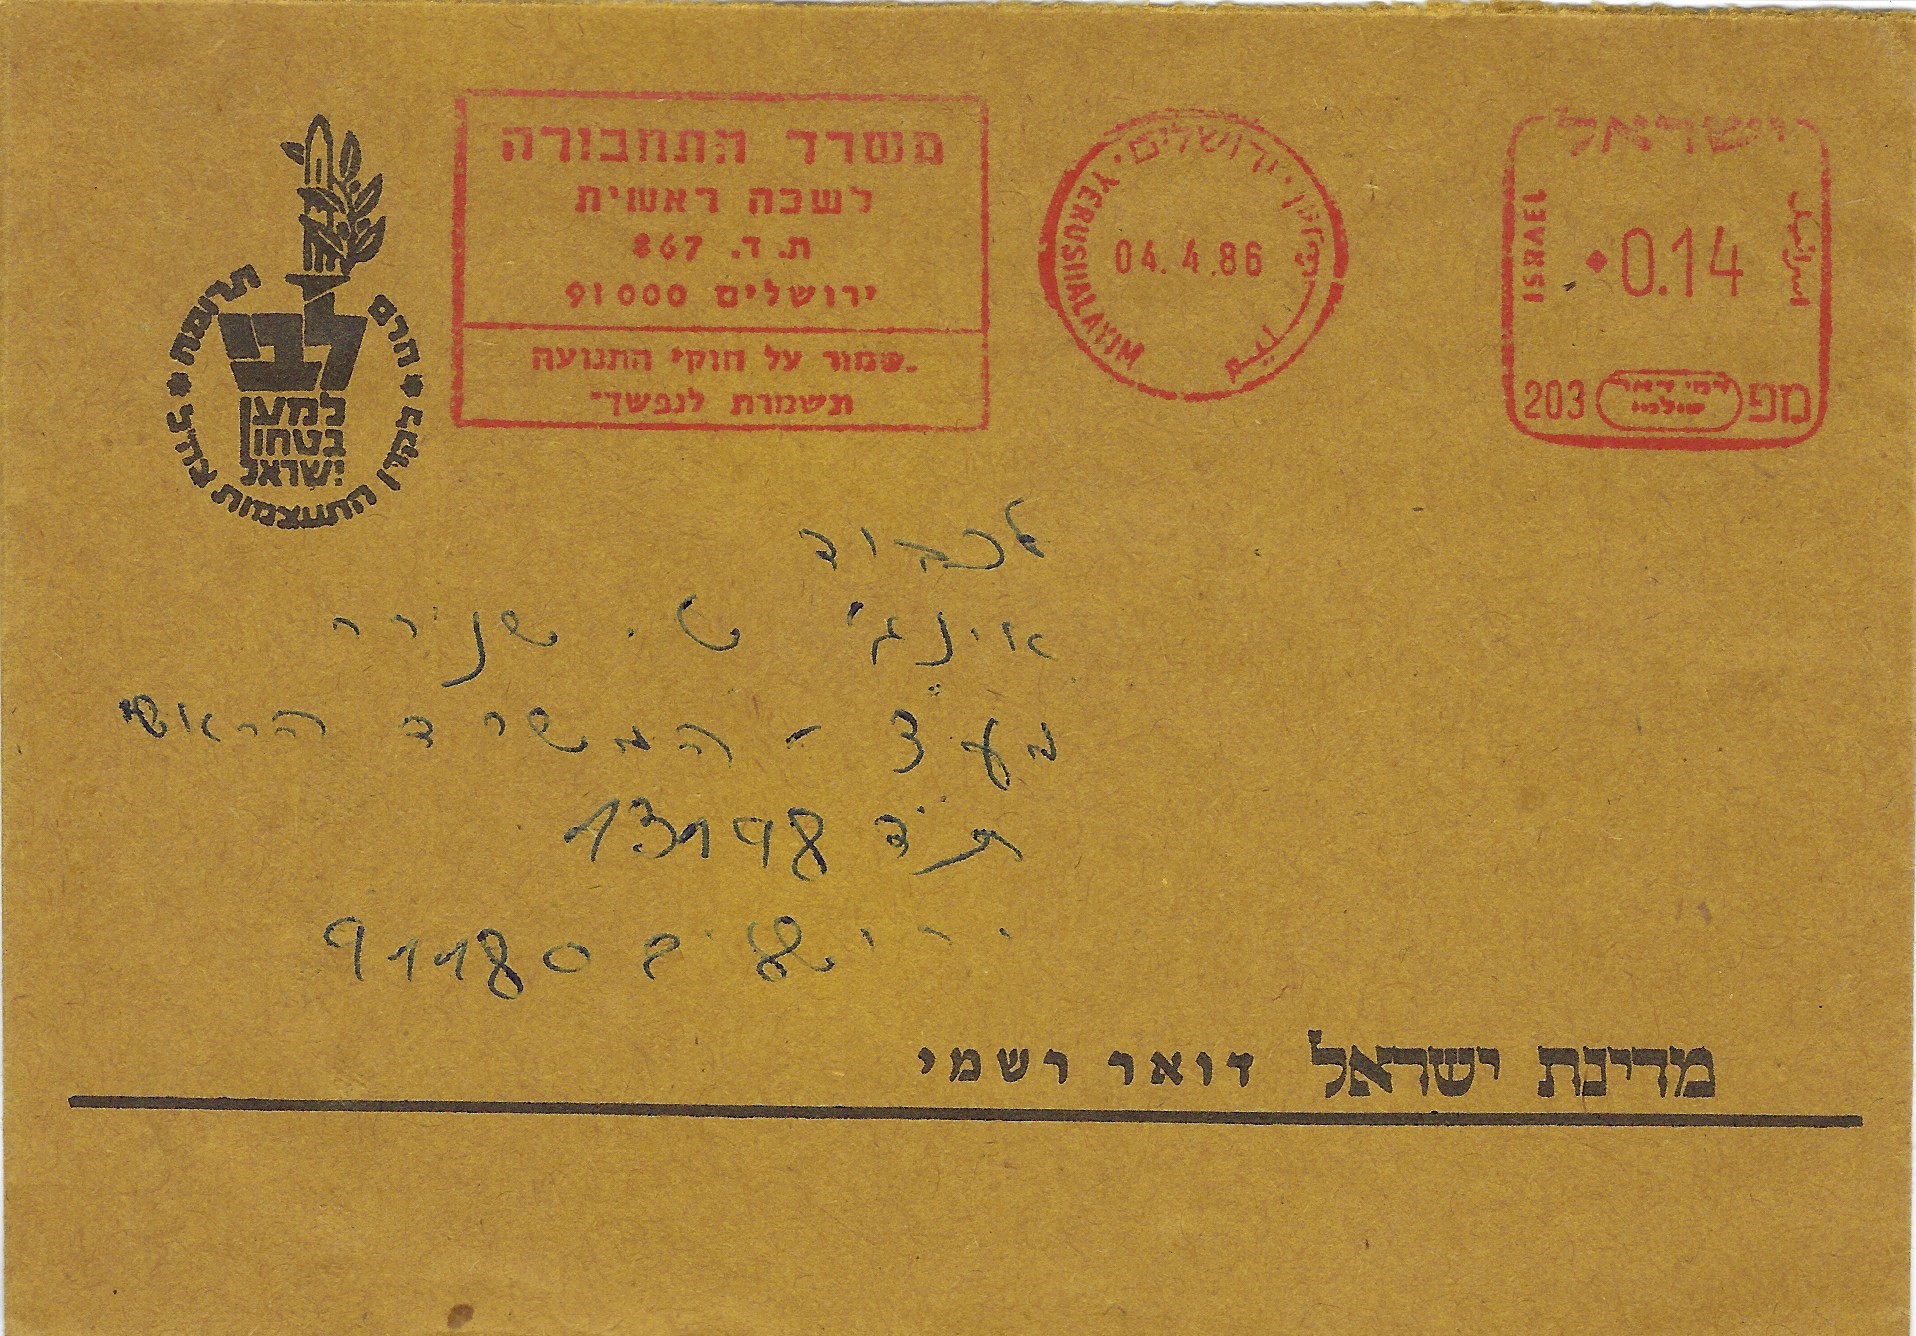 משרד התחבורה
לשכה ראשית
ת. ד. 867
ירושלים 91000
שמור על חוקי התנועה
תשמורת לנפשך
ירושלים
YERUSHALAYIM
04.4.86
القدس
ישראל
ISRAEL
اسرائيل
0.14
203 דמי דואר שולמו מפ
הרם תרומה לקרן התעצמות צה"ל
לבי
למען
בטחון
ישראל
לכבוד
אינג' ש. שניرר
מע"צ - המשרד הראשי
ת"ד 13198
ירושלים 91180
מדינת ישראל דואר רשמי